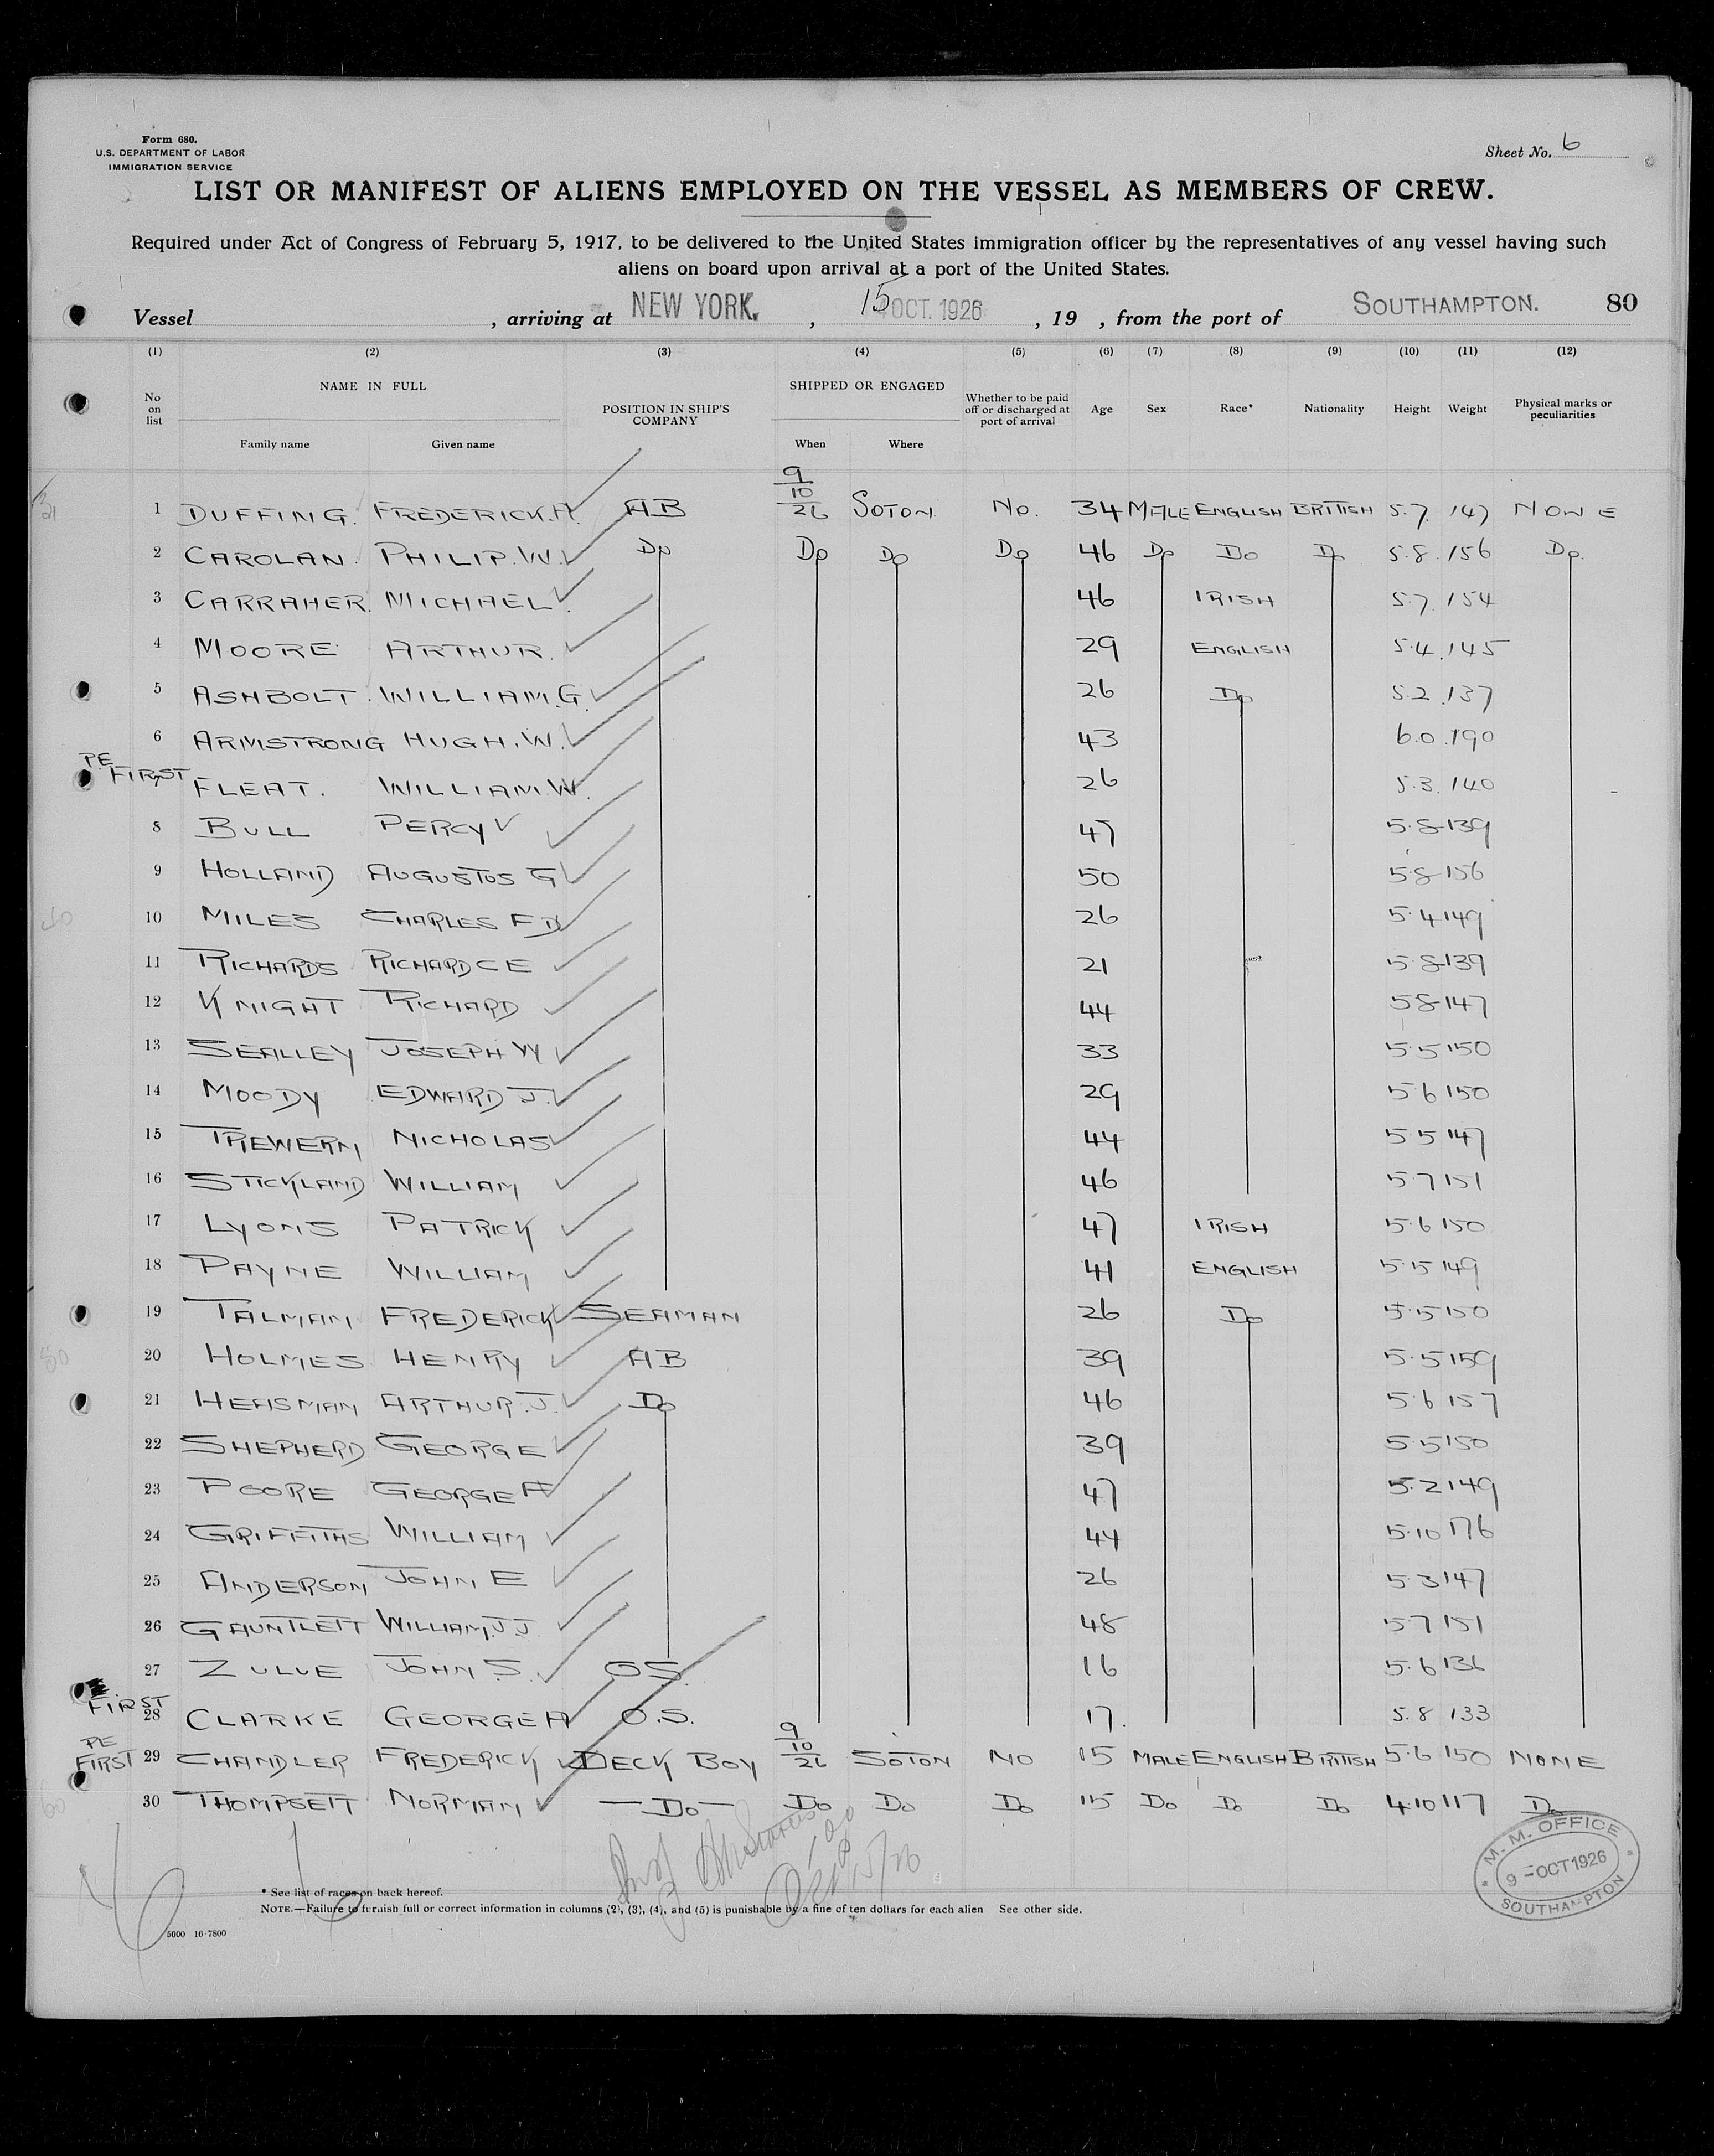 Form 680.
U.S. DEPARTMENT OF LABOR
IMMIGRATION SERVICE
Sheet No. 6
LIST OR MANIFEST OF ALIENS EMPLOYED ON THE VESSEL AS MEMBERS OF CREW.
Required under Act of Congress of February 5, 1917, to be delivered to the United States immigration officer by the representatives of any vessel having such
aliens on board upon arrival at a port of the United States.
Vessel , arriving at NEW YORK. , 15 OCT. 1926 , 19 , from the port of SOUTHAMPTON. 80
(1) (2) (3) (4) (5) (6) (7) (8) (9) (10) (11) (12)
No on list NAME IN FULL Family name Given name POSITION IN SHIP'S COMPANY SHIPPED OR ENGAGED When Where Whether to be paid off or discharged at port of arrival Age Sex Race* Nationality Height Weight Physical marks or peculiarities
1 DUFFING. FREDERICK.A. AB 9/10/26 SOTON. No. 34 MALE ENGLISH BRITISH 5.7. 147 NONE
2 CAROLAN. PHILIP.W. Do Do Do Do 46 Do Do Do 5.8. 156 Do.
3 CARRAHER. MICHAEL. 46 IRISH 5.7. 154
4 MOORE ARTHUR. 29 ENGLISH 5.4. 145
5 ASHBOLT. WILLIAM.G. 26 Do 5.2. 137
6 ARMSTRONG HUGH.W. 43 6.0. 190
PE FIRST FLEAT. WILLIAM.W. 26 5.3. 140
8 BULL PERCY V 47 5.8 139
9 HOLLAND AUGUSTUS G 50 5.8 156
10 MILES CHARLES F D 26 5.4 149
11 RICHARDS RICHARD C E 21 5.8 139
12 KNIGHT RICHARD 44 5.8 147
13 SEALLEY JOSEPH W 33 5.5 150
14 MOODY EDWARD J. 29 5.6 150
15 TREWERN NICHOLAS 44 5.5 147
16 STICKLAND WILLIAM 46 5.7 151
17 LYONS PATRICK 47 IRISH 5.6 150
18 PAYNE WILLIAM 41 ENGLISH 5.5 149
19 TALMAN FREDERICK SEAMAN 26 Do 5.5 150
20 HOLMES HENRY AB 39 5.5 159
21 HEASMAN ARTHUR.J. Do 46 5.6 157
22 SHEPHERD GEORGE 39 5.5 150
23 POORE GEORGE A 47 5.2 149
24 GRIFFITHS WILLIAM 44 5.10 176
25 ANDERSON JOHN E 26 5.3 147
26 GAUNTLETT WILLIAM.J J 48 5.7 151
27 ZULUE JOHN S. O.S. 16 5.6 136
FIRST 28 CLARKE GEORGE A O.S. 17. 5.8 133
PE FIRST 29 CHANDLER FREDERICK DECK BOY 9/10/26 SOTON NO 15 MALE ENGLISH BRITISH 5.6 150 NONE
30 THOMPSETT NORMAN — Do — Do Do Do 15 Do Do Do 4.10 117 Do
M. M. OFFICE
9 - OCT 1926
SOUTHAMPTON
* See list of races on back hereof.
NOTE.—Failure to furnish full or correct information in columns (2), (3), (4), and (5) is punishable by a fine of ten dollars for each alien See other side.
5000 16-7800